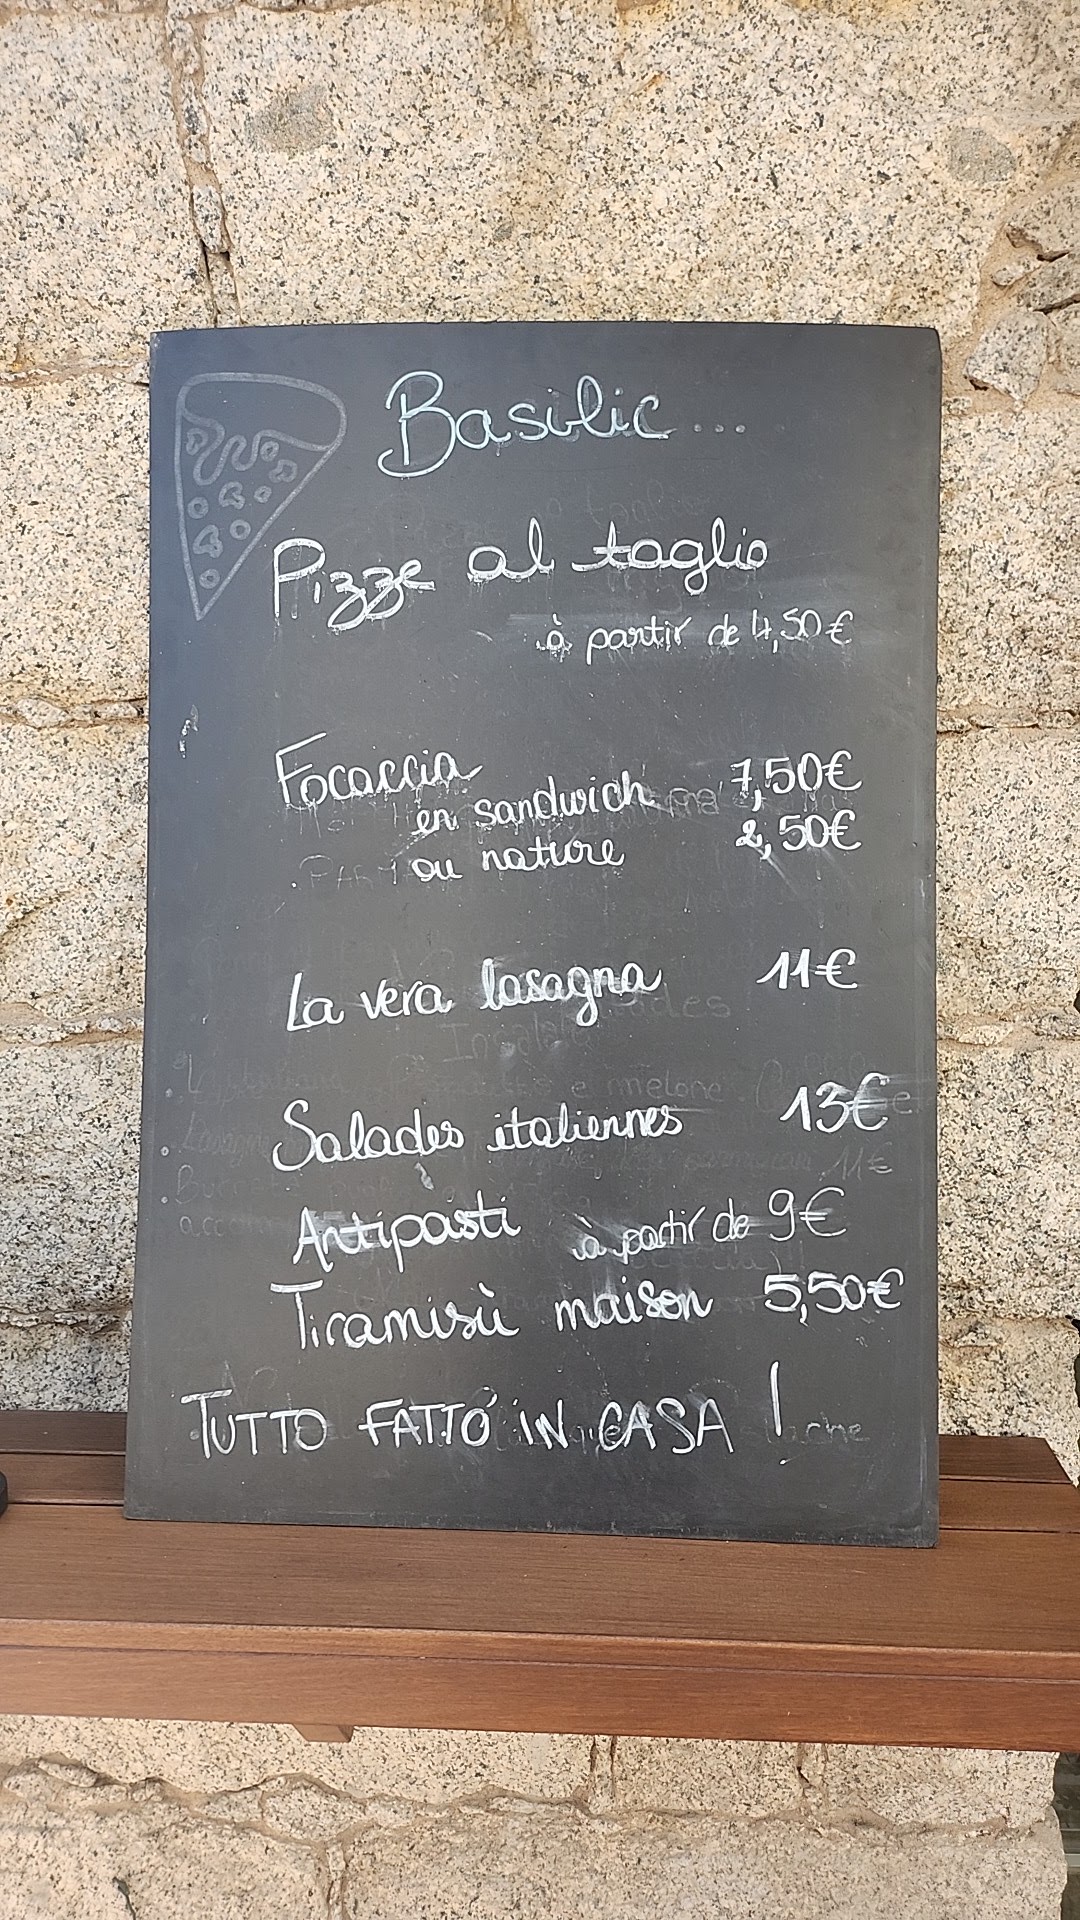 Basilic...
Pizze al taglio
à partir de 4,50€
Focaccia
en sandwich 7,50€
ou nature 2,50€
La vera lasagna 11€
Salades italiennes 13€
Antipasti à partir de 9€
Tiramisù maison 5,50€
TUTTO FATTO IN CASA !